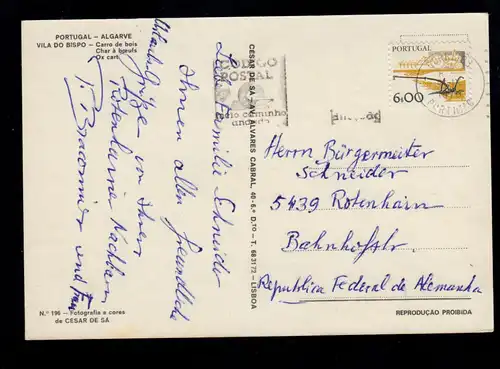 PORTUGAL - ALGARVE
VILA DO BISPO - Carro de bois
Char à bœufs
Ox cart
Liebe Familie Schneider
Ihnen allen freundliche
Urlaubsgrüße von Ihren
Rotenhainer Nachbarn
und Frau
N.º 196 - Fotografia a cores
de CESAR DE SÁ
CESAR DE SÁ, AV. ALVARES CABRAL, 40-5.º D.TO - T. 683172 - LISBOA
CÓDIGO
POSTAL
meio caminho
andado
PORTUGAL
6.00
Herrn Bürgermeister
Schneider
5439 Rotenhain
Bahnhofstr.
Republica Federal de Alemanha
REPRODUÇÃO PROIBIDA